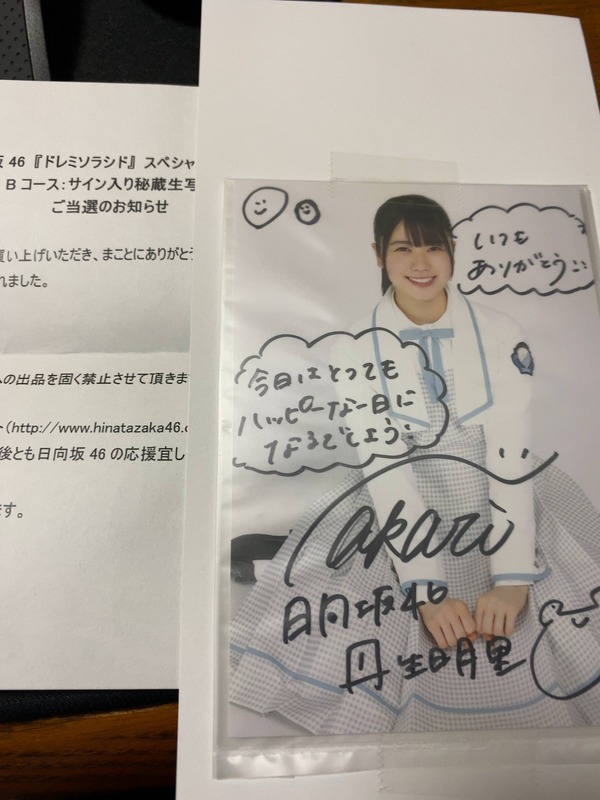 坂46『ドレミソラシド』スペシャ
Bコース：サイン入り秘蔵生写
ご当選のお知らせ
買い上げいただき、まことにありがとう
れました。
への出品を固く禁止させて頂きま
(http://www.hinatazaka46.c
後とも日向坂46の応援宜し
ます。
いつも
ありがとう
今日はとっても
ハッピーな一日に
なるでしょう
akari
日向坂46
丹生明里